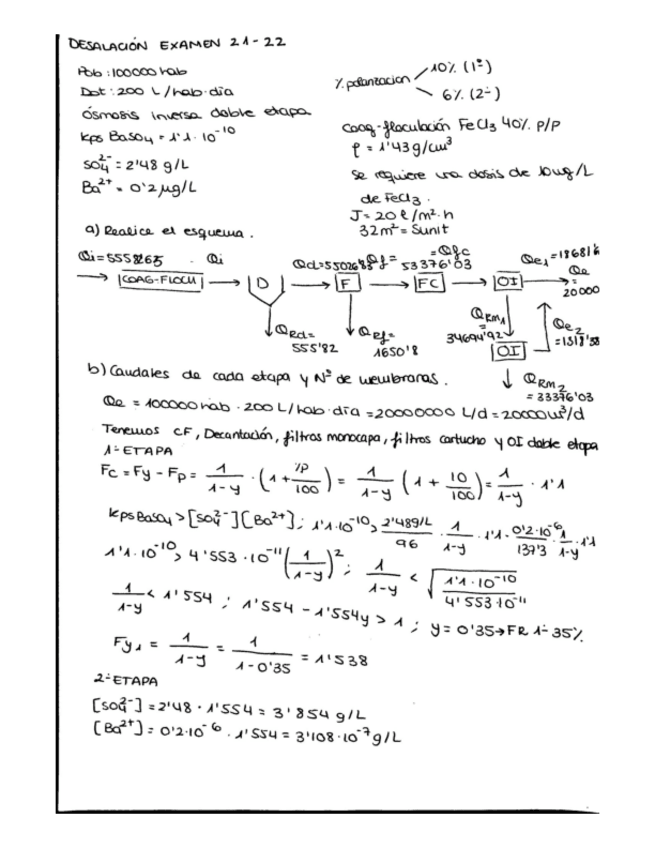 DESALACIÓN EXAMEN 21-22
Pob: 100000 hab
Dot: 200 L/hab·día
Ósmosis inversa doble etapa
Kps BaSO4 = 1'1·10^-10
SO4^2- = 2'48 g/L
Ba^2+ = 0'2 µg/L
% polarizacion 10% (1ª)
6% (2ª)
Coag-floculación FeCl3 40% P/P
ρ = 1'43 g/cm³
Se requiere una dosis de 10 mg/L
de FeCl3.
J = 20 l/m²·h
32 m² = Sunit
a) Realice el esquema.
Qi = 55582'65 Qi Qd = 55026'83 Qf = 53376'03 = Qfc Qe1 = 18681'
COAG-FLOCU D F FC OI Qe = 20000
QRd = 555'82
QRf = 1650'8
QRM1 = 34694'92
Qe2 = 1318'58
OI
QRM2 = 33376'03
b) Caudales de cada etapa y Nº de membranas.
Qe = 100000 hab · 200 L/hab·día = 20000000 L/d = 20000 m³/d
Tenemos CF, Decantación, filtros monocapa, filtros cartucho y OI doble etapa
1ª ETAPA
Fc = Fy - Fp = 1/1-y · (1 + %p/100) = 1/1-y (1 + 10/100) = 1/1-y · 1'1
Kps BaSO4 > [SO4^2-][Ba^2+]; 1'1·10^-10 > 2'48 g/L/96 · 1/1-y · 1'1 · 0'2·10^-6/137'3 · 1/1-y · 1'1
1'1·10^-10 > 4'553·10^-11 (1/1-y)²; 1/1-y < √(1'1·10^-10/4'553·10^-11)
1/1-y < 1'554; 1'554 - 1'554y > 1; y = 0'35 → FR 1ª 35%
Fy1 = 1/1-y = 1/1-0'35 = 1'538
2ª ETAPA
[SO4^2-] = 2'48 · 1'554 = 3'854 g/L
[Ba^2+] = 0'2·10^-6 · 1'554 = 3'108·10^-7 g/L